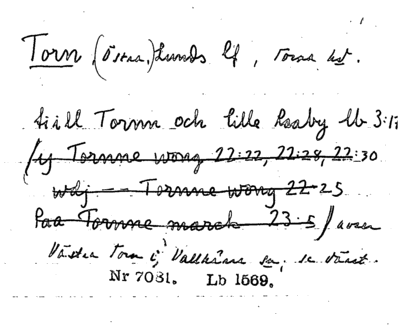 Torn (Östra) Lunds lf, Torna hd.
till Tornn och lille Raaby lb 3:17
/ij Tornne wong 22:22, 22:28, 22:30
wdj -- Tornne wong 22-25
Paa Tornne marck 23:5/ avser
Västra Torn i Vallkärra sn, se Värst.
Nr 7081. Lb 1569.